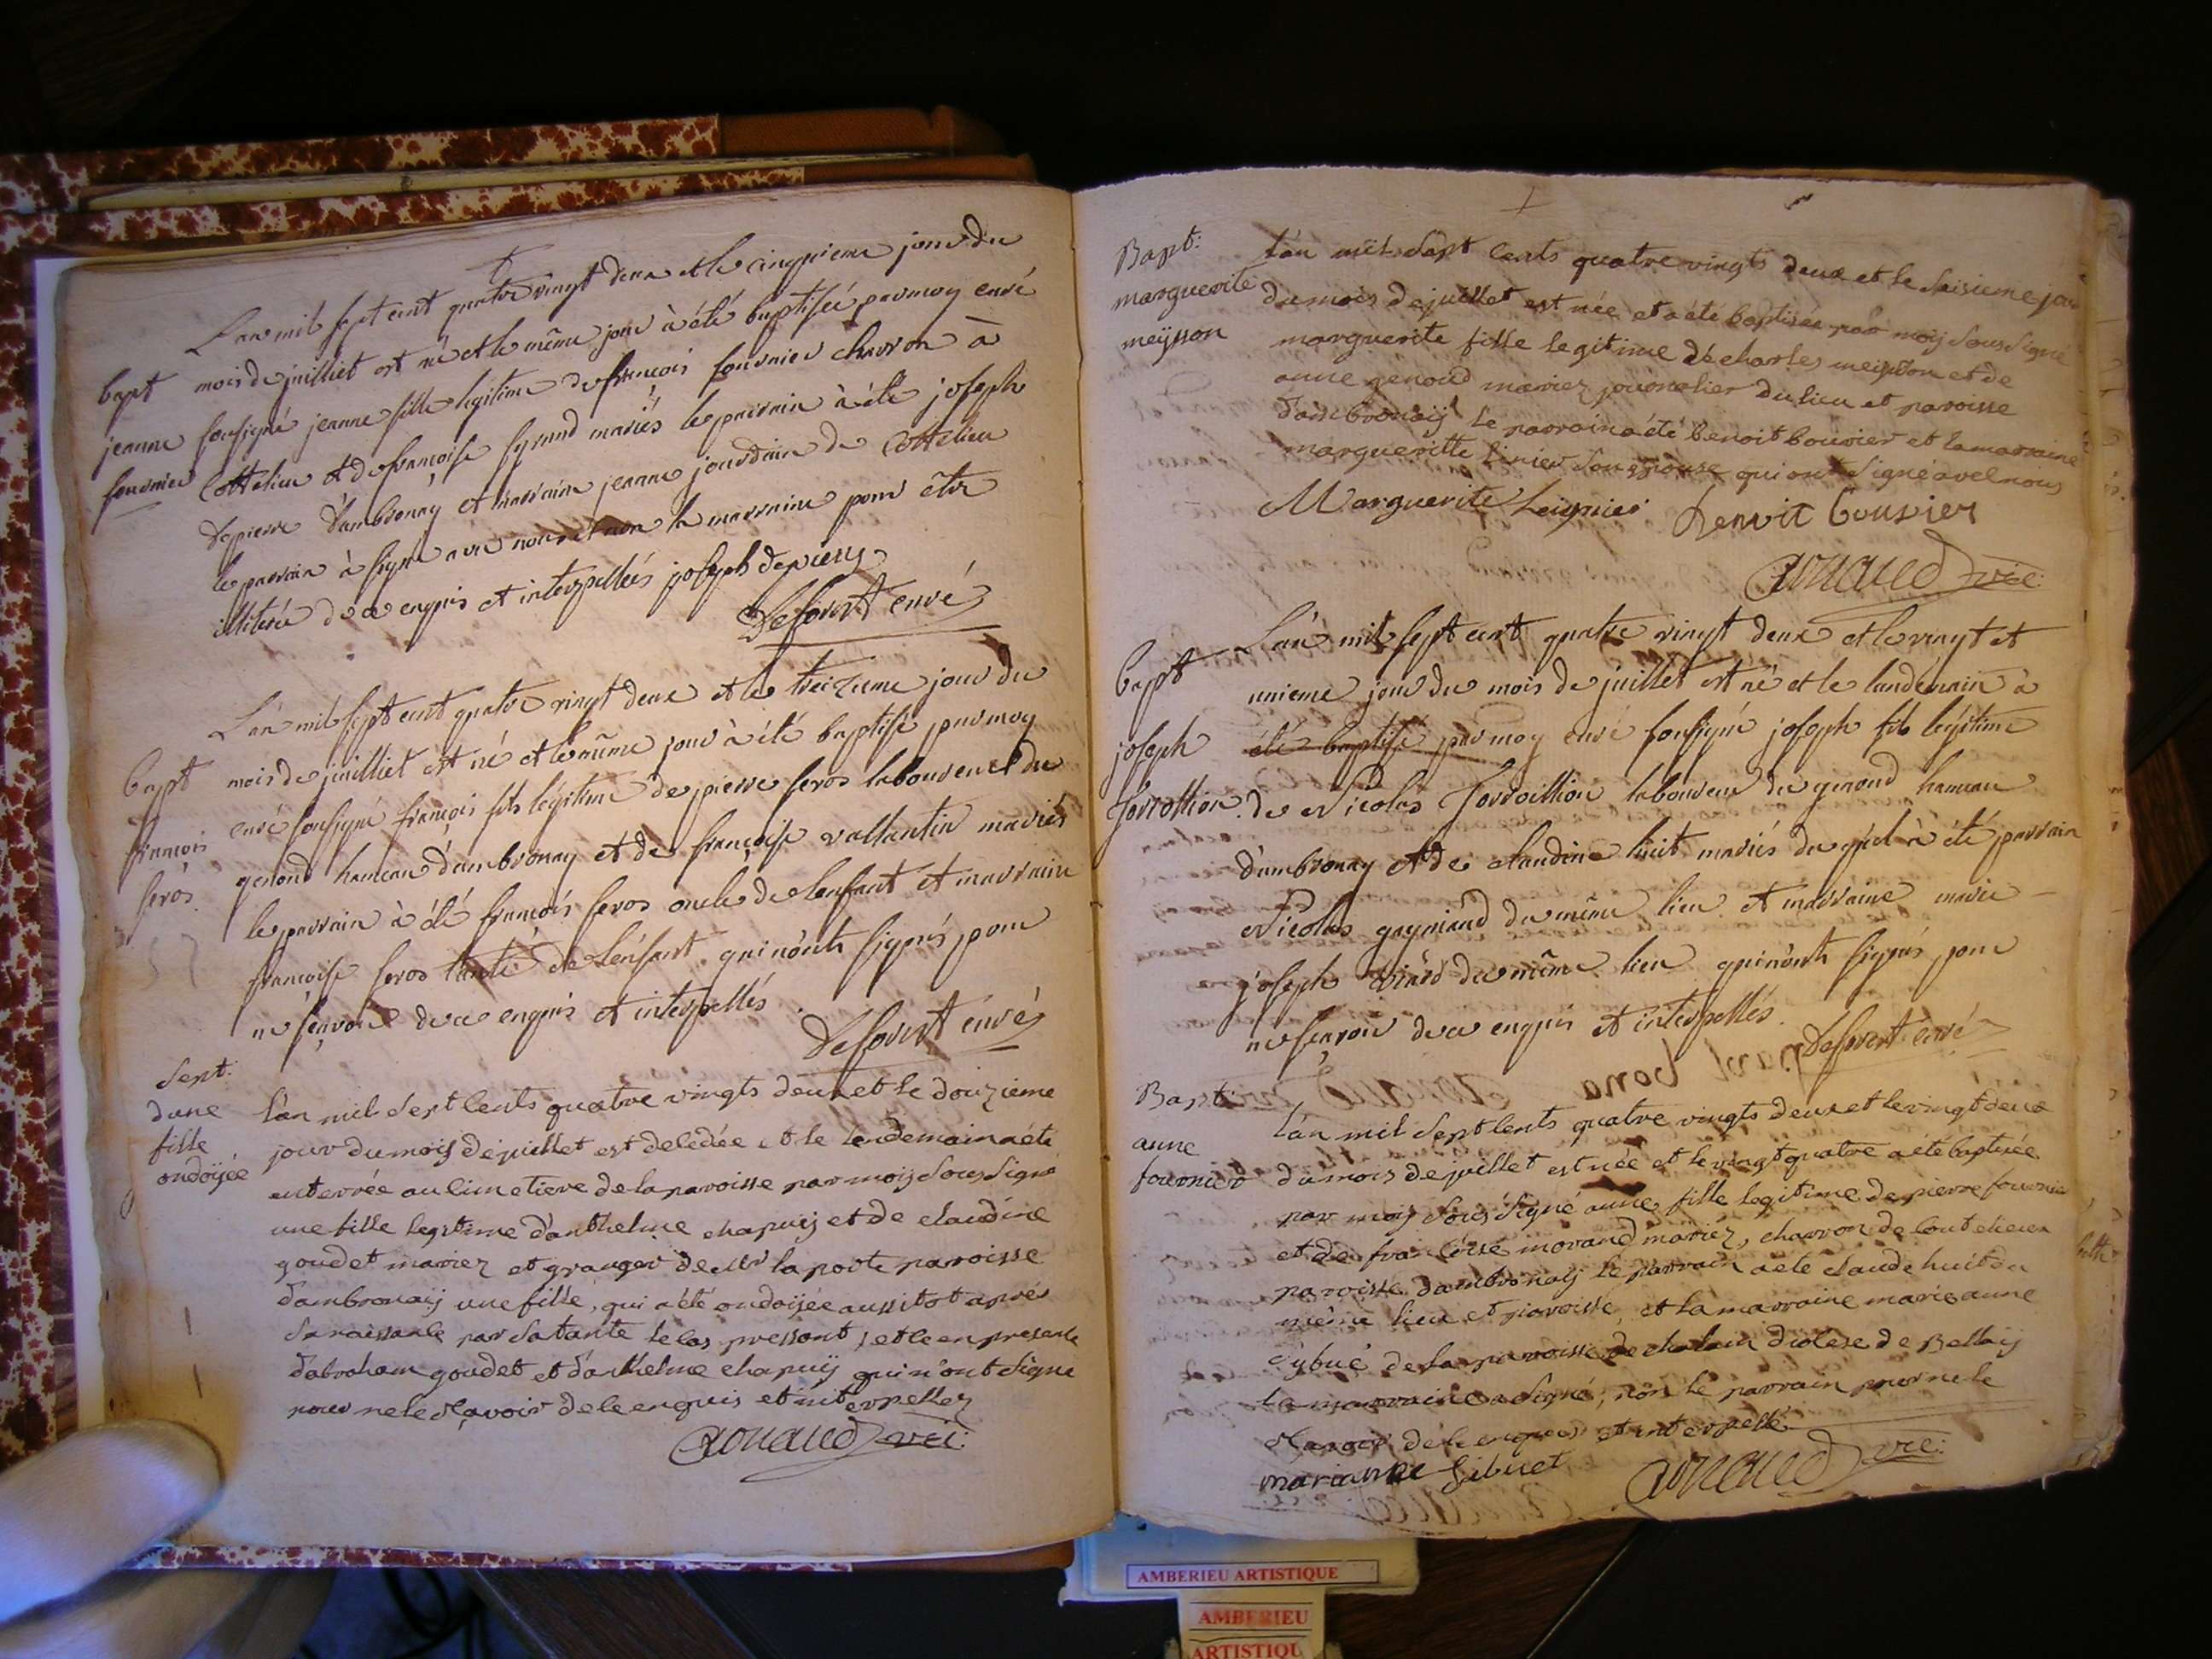 L'an mil sept cent quatre vingt deux et le cinquieme jour du
bapt mois de juilliet est né et le même jour à été baptisée par moy curé
jeanne sousigné jeanne fille legitime de francois fournier charron à
fournier Cottelieu et de francoise morand mariés le parrain à été joseph
depierre d'ambronay et marraine jeanne jourdain de Cottelieu
le parrain à signé avec nous et non la marraine pour être
illiterée de ce enquis et interpellés joseph depierre
Defovert curé
L'an mil sept cent quatre vingt deux et le treizieme jour du
bapt mois de juilliet est né et le même jour à été baptisé par moy
françois curé sousigné françois fils légitime de pierre feros laboureur du
feros. genoud hameau d'ambronay et de françoise vallantin mariés
le parrain à été françois feros oncle de lenfant et marraine
françoise feros tante de lenfant qui n'onts signés pour
ne sçavoir de ce enquis et interpellés
Defovert curé
Sept.
dune
fille
ondoijée
l'an mil sept cents quatre vingts deux et le douzieme
jour du mois de juillet est decedée et le lendemain a été
enterrée au cimetiere de la paroisse par moij sous signé
une fille legitime d'anthelme chapuij et de claudine
goudet mariez et granger de Mr la porte paroisse
d'ambronaij une fille, qui a été ondoijée aussitot aprés
sa naissance par sa tante le cas pressant, et ce en presence
d'abraham goudet et d'anthelme chapuij qui n'ont signé
pour ne le sçavoir de ce enquis et interpellez
arnaud vic:
Bapt:
marguerite
meijsson
l'an mil sept cents quatre vingts deux et le seisieme jour
du mois de juillet est née et a été baptisée par moij sous signé
marguerite fille legitime de charles meijsson et de
anne genoud mariez journalier du lieu et paroisse
d'ambronaij le parrain a été benoit bouvier et la marraine
margueritte Linier son epouse qui ont signé avec nous
Marguerite Leignier Benoit bouvier
arnaud vic:
L'an mil sept cent quatre vingt deux et le vingt et
bapt unieme jour du mois de juillet est né et le landemain à
joseph été baptisé par moy curé sousigné joseph fils legitime
de Nicolas laboureur du genoud hameau
d'ambronay et de claudine huit mariés du quel à été parrain
Nicolas gagniand du même lieu et marraine marie
joseph du même lieu qui n'onts signés pour
ne sçavoir de ce enquis et interpellés.
Defovert curé
Bapt:
anne
fournier
l'an mil sept cents quatre vingts deux et le vingt deux
du mois de juillet est née et le vingt quatre a été baptisée
par moij sous signé anne fille legitime de pierre fournier
et de francoise morand mariez, charron de coutelieux
paroisse d'ambronaij le parrain a été claude huit du
même lieu et paroisse, et la marraine marie anne
de la paroisse de diocese de Bellaij
la marraine a signé, non le parrain pour ne le
sçavoir de ce enquis et interpellé.
marianne Sibuet arnaud vic:
AMBERIEU ARTISTIQUE
AMBERIEU
ARTISTIQU